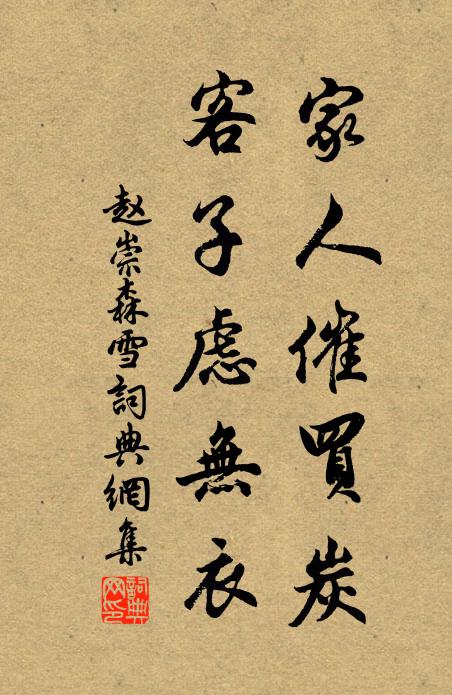 家人催買炭
客子慮無衣
赵崇森雪詞典網集
詞典网印